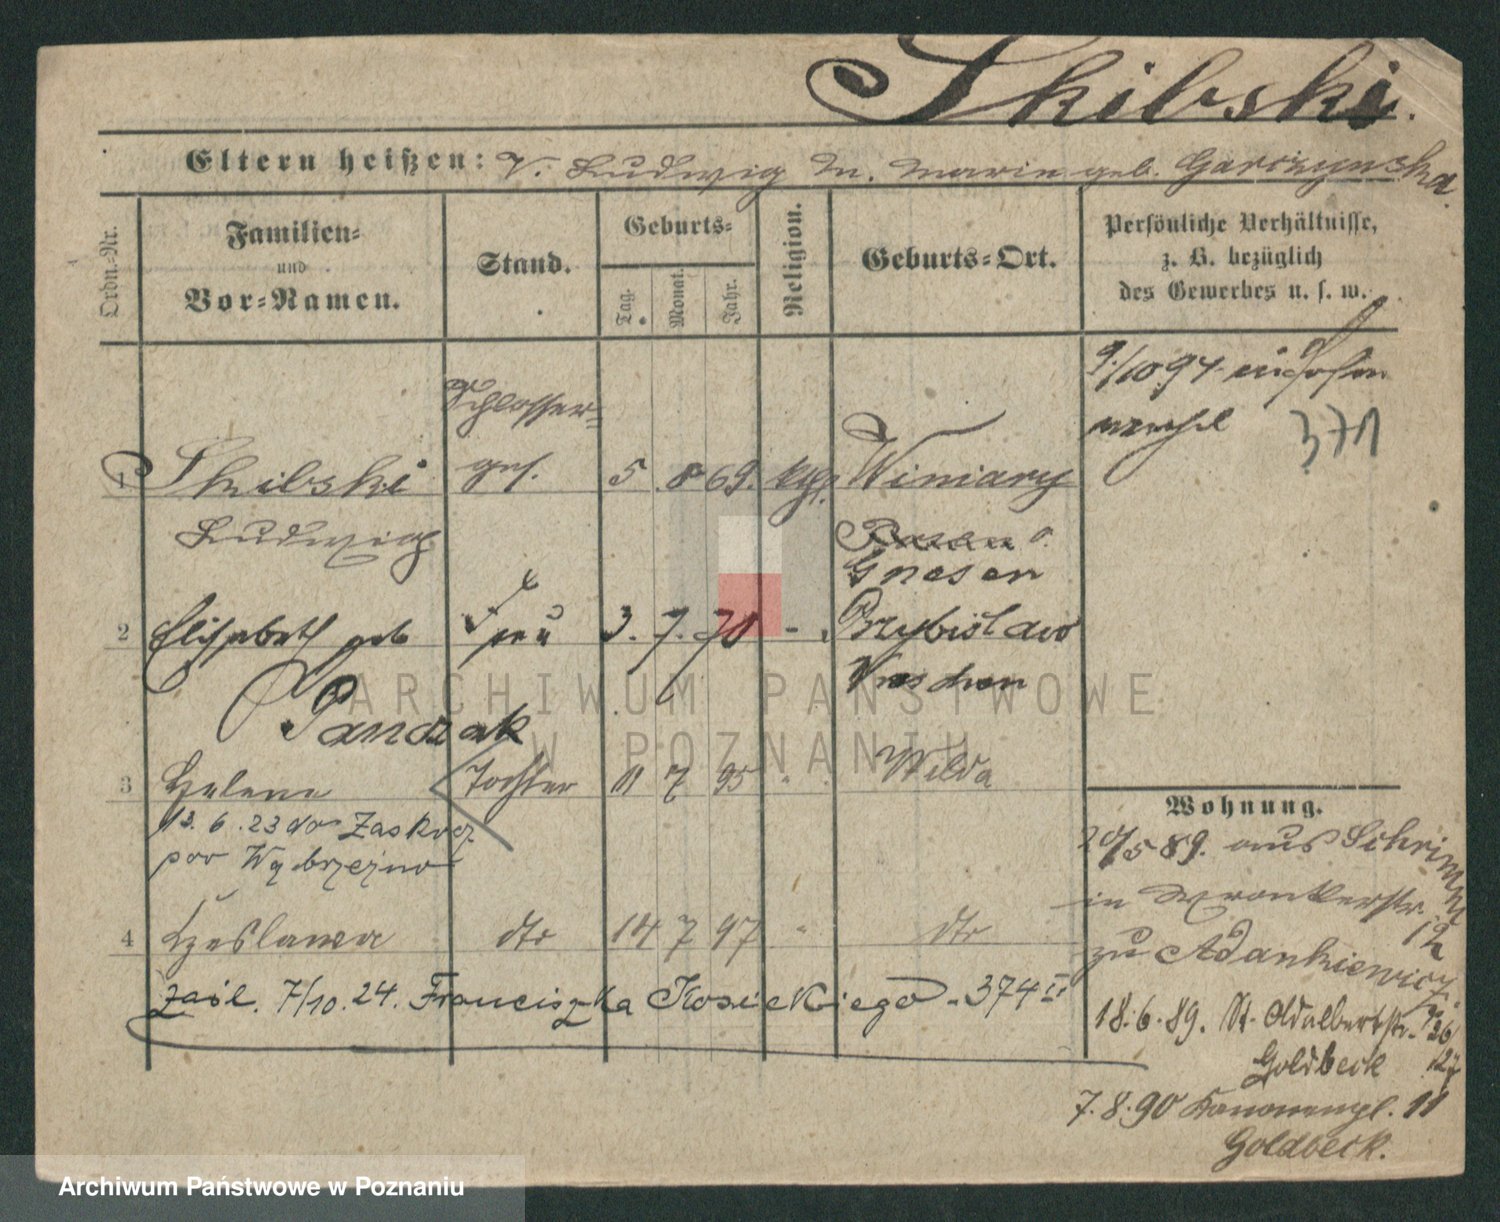 Skibski.
Eltern heißen: V. Ludwig M. Marie geb. Garczynska.
Ordn.-Nr.
Familien-
und
Vor-Namen.
Stand.
Geburts-
Tag.
Monat.
Jahr.
Religion.
Geburts-Ort.
Persönliche Verhältnisse,
z. B. bezüglich
des Gewerbes u. s. w.
9/10 94
371
Schlosser-
1 Skibski ges. 5. 8 69. kth. Winiary
Ludwig
Posen
Gnesen
2 Elisabeth geb Frau 3. 7. 70 - Przybislaw
Wreschen
Panczak
3 Helene Tochter 11 7 95 " Wilda
13.6.23 do Zaskocz
pow Wąbrzeźno
4 Czeslawa dto 14 7 97 " dto
zaśl. 7/10.24. Franciszka Kosickiego - 374 II
Wohnung.
20/5 89. aus Schrimm
in Wronkerstr. 12
zu Adankiewicz
18.6.89. St. Adalbertstr. 26/27
Goldbeck
7.8.90 Kanonenpl. 11
Goldbeck.
ARCHIWUM PAŃSTWOWE
W POZNANIU
Archiwum Państwowe w Poznaniu